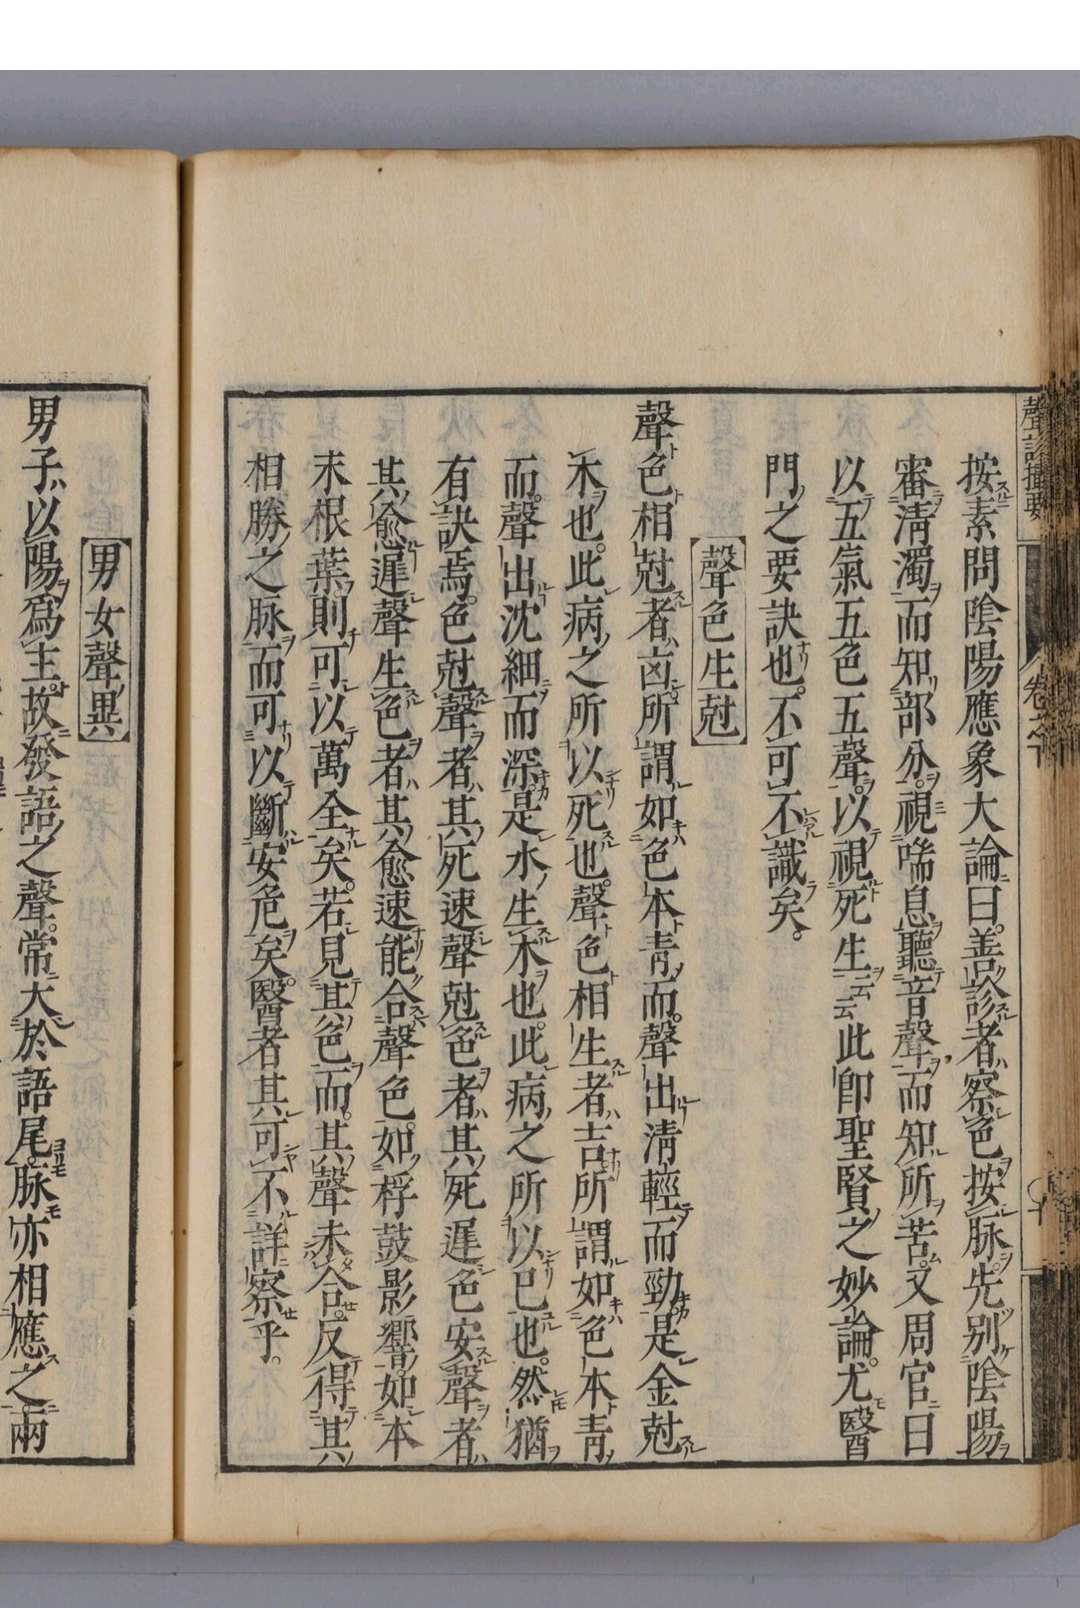 聲診攝要
按素問陰陽應象大論曰。善診者。察色按脉。先別陰陽
審清濁而知部分。視喘息。聽音聲。而知所苦。又周官曰
以五氣五色五聲。以視死生云云此即聖賢之妙論。尤醫
門之要訣也。不可不識矣。
聲色生尅
聲色相尅者凶。所謂如色本青而。聲出清輕而勁。是金尅
木也。此病之所以死也。聲色相生者吉。所謂如色本青
而。聲出沈細而深。是水生木也。此病之所以已也。然猶
有訣焉。色尅聲者。其死速聲尅色者。其死遲色安聲者。
其愈遲聲生色者。其愈速能合聲色。如桴鼓影響。如本
末根葉則可以萬全矣。若見其色而。其聲未合。反得其
相勝之脉而可以斷安危矣。醫者其可不詳察乎。
男女聲異
男子以陽爲主。故發語之聲。常大於語尾。脉亦相應之兩